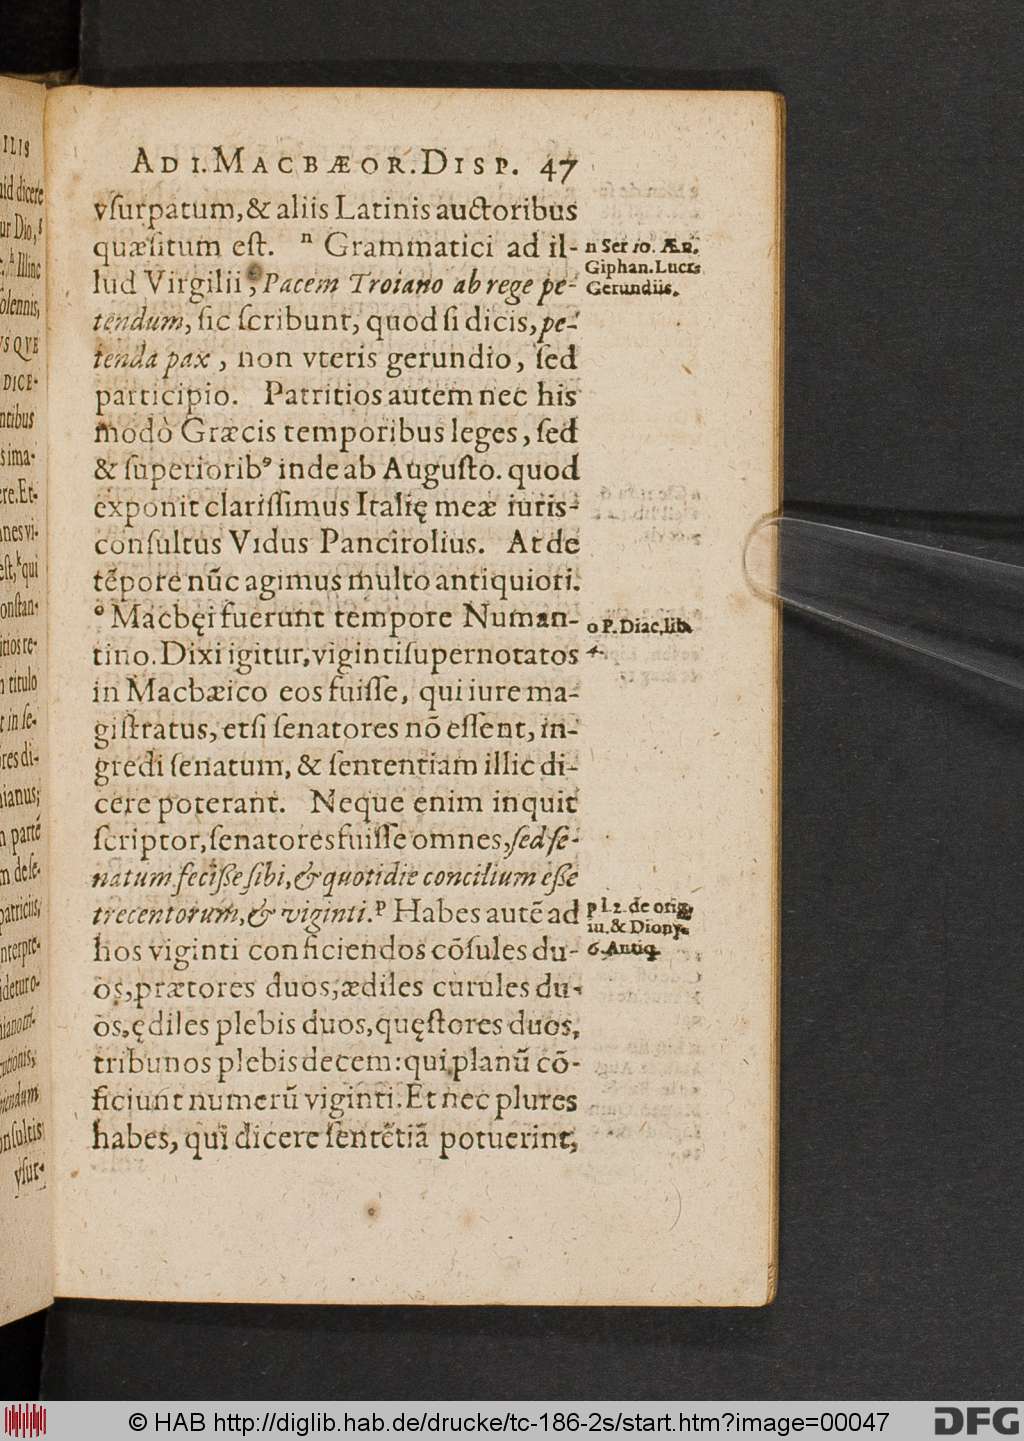 AD I. MACBÆOR. DISP. 47
vſurpatum, & aliis Latinis auctoribus
quæſitum eſt. ⁿ Grammatici ad il-
lud Virgilii; Pacem Troiano ab rege pe-
tendum, ſic ſcribunt, quod ſi dicis, pe-
tenda pax, non vteris gerundio, ſed
participio. Patritios autem nec his
modò Græcis temporibus leges, ſed
& ſuperioribꝰ inde ab Auguſto. quod
exponit clariſſimus Italię meæ iuris-
conſultus VIDUS Pancirolius. At de
tẽpore nũc agimus multo antiquiori.
º Macbęi fuerunt tempore Numan-
tino. Dixi igitur, viginti ſupernotatos
in Macbæico eos fuiſſe, qui iure ma-
giſtratus, etſi ſenatores nõ eſſent, in-
gredi ſenatum, & ſententiam illic di-
cere poterant. Neque enim inquit
ſcriptor, ſenatores fuiſſe omnes, ſed ſe-
natum feciſſe ſibi, & quotidie concilium eſſe
trecentorum, & viginti. ᵖ Habes autẽ ad
hos viginti conficiendos cõſules du-
os, prætores duos, ædiles curules du-
os, ędiles plebis duos, quęſtores duos,
tribunos plebis decem: qui planũ cõ-
ficiunt numerũ viginti. Et nec plures
habes, qui dicere ſentẽtiã potuerint,
n Ser 10. Æn.
Giphan. Lucr.
Gerundiis.
o P. Diac. lib.
4.
p l. 2. de orig.
iu. & Diony.
6. Antiq.
ILIS
dicere
ur Dio, ᵍ
ʰ Illinc
olennis,
DICE-
ntibus
s ima-
ere. Et-
nes vi-
eſt, ᵏ qui
onſtan-
itios re-
titulo
t in ſe-
res di-
nianus;
partẽ
m de ſe-
patriciis,
nterpre-
idetur o-
nſultis
vſur-
© HAB http://diglib.hab.de/drucke/tc-186-2s/start.htm?image=00047
DFG